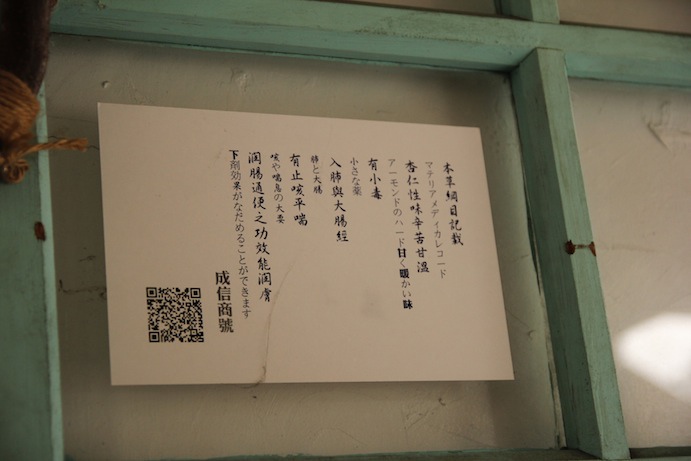 本草綱目記載
マテリアメディカレコード
杏仁性味辛苦甘溫
アーモンドのハード甘く暖かい味
有小毒
小さな薬
入肺與大腸經
肺と大腸
有止咳平喘
咳や喘息の大要
潤腸通便之功效能潤膚
下剤効果がなだめることができます
成信商號